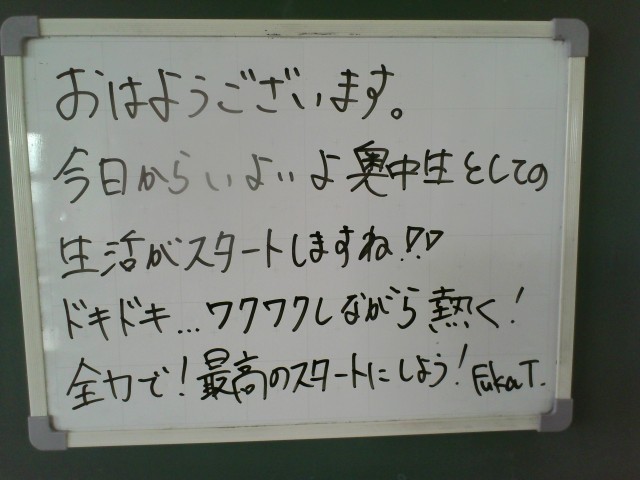 おはようございます。
今日からいよいよ奥中生としての
生活がスタートしますね!!
ドキドキ...ワクワクしながら熱く!
全力で!最高のスタートにしよう! Fuka T.